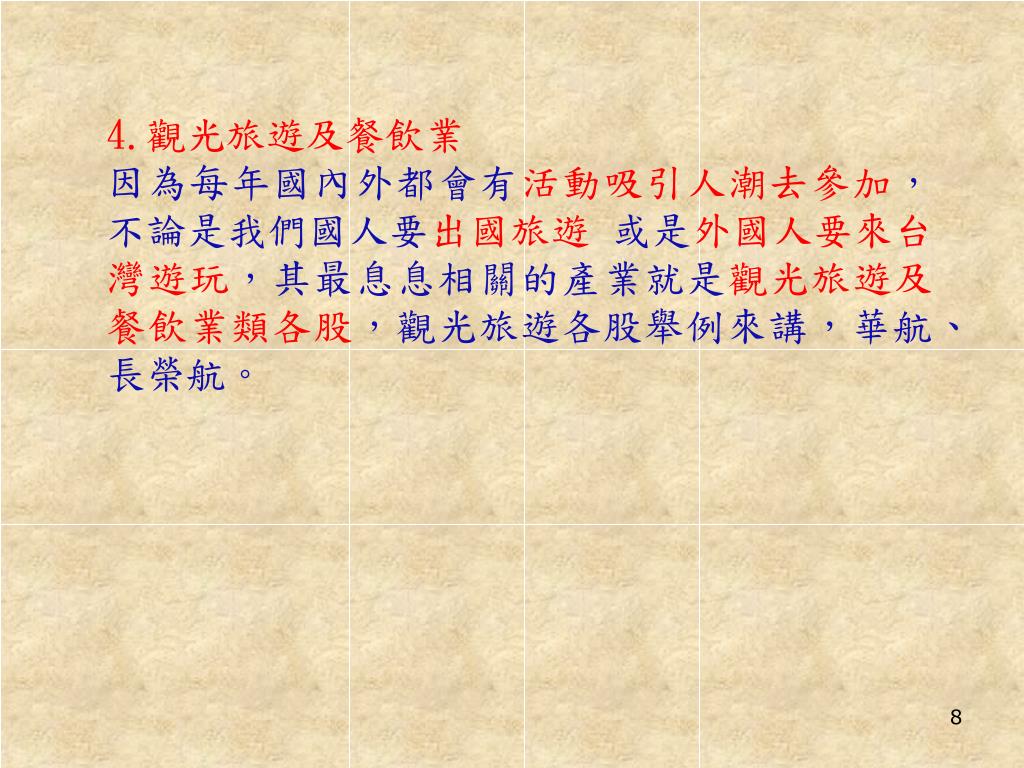 4.觀光旅遊及餐飲業
因為每年國內外都會有活動吸引人潮去參加，
不論是我們國人要出國旅遊 或是外國人要來台
灣遊玩，其最息息相關的產業就是觀光旅遊及
餐飲業類各股，觀光旅遊各股舉例來講，華航、
長榮航。
8